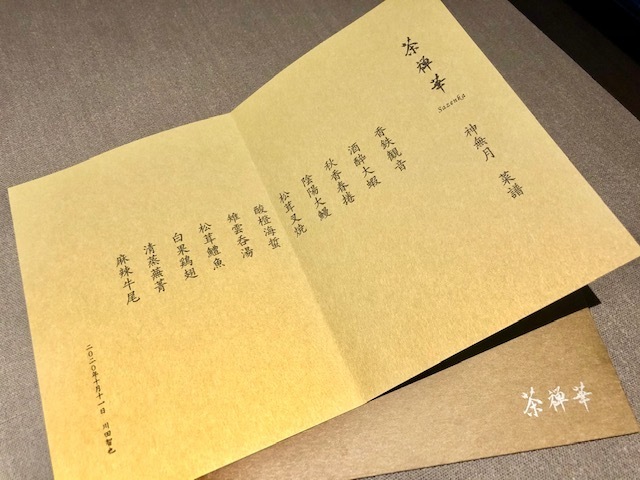 茶禅華
Sazenka
神無月 菜譜
香鉄観音
酒酔大蝦
秋香春捲
陰陽大鰻
松茸叉焼
酸橙海蜇
雉雲呑湯
松茸鱧魚
白果鶏翅
清蒸蕪菁
麻辣牛尾
二〇二〇年十月十一日 川田智也
茶禅華